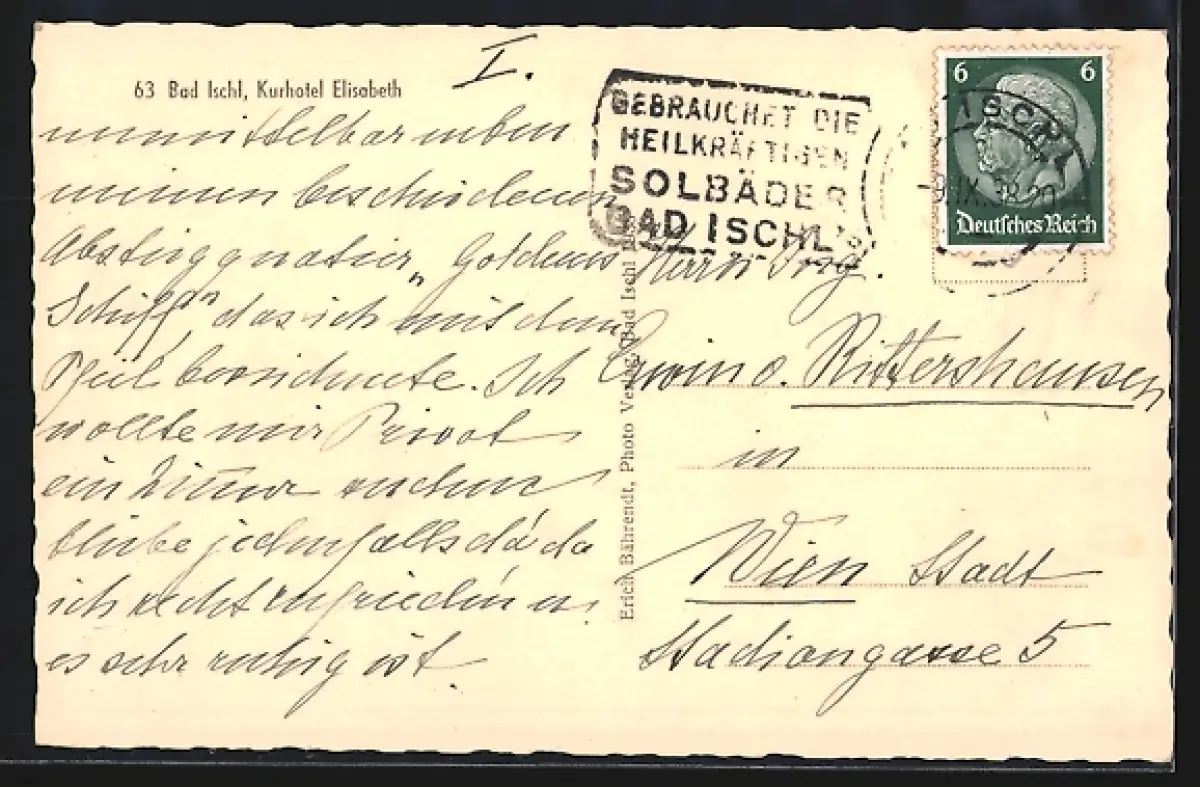 63 Bad Ischl, Kurhotel Elisabeth
I.
unmittelbar neben
meinen bescheidenen
Absteigquatier „Goldenes
Schiff" das ich mit dem
Pfeil bezeichnete. Ich
wollte mir Privat
ein Zimmer suchen
bleibe jedenfalls da da
ich recht zufrieden u.
es sehr ruhig ist.
Erich Bährendt, Photo Verlag, Bad Ischl
GEBRAUCHET DIE
HEILKRÄFTIGEN
SOLBÄDER
BAD ISCHL'S
6 6
Deutsches Reich
ISCHL
Herrn Ing.
Erwin v. Rittershausen
in
Wien Stadt
Stadiongasse 5